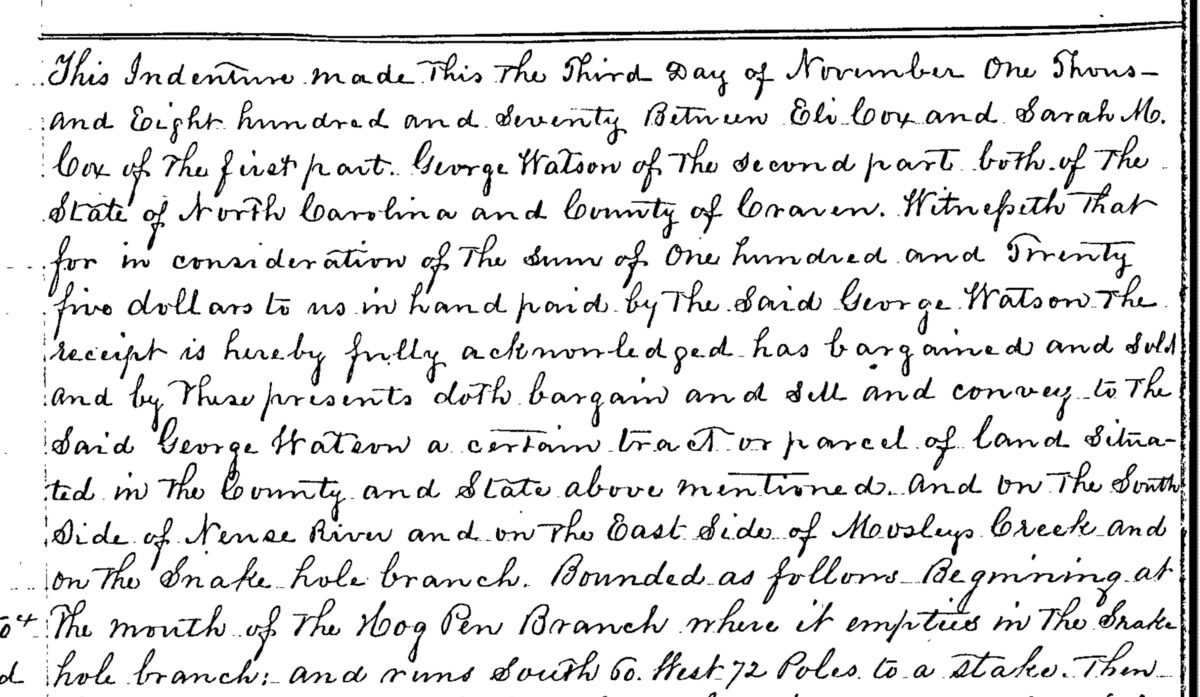 This Indenture made This The Third Day of November One Thous-
and Eight hundred and Seventy Between Eli Cox and Sarah M.
Cox of The first part. George Watson of The Second part both of The
State of North Carolina and County of Craven. Witnesseth That
for in consideration of The Sum of One hundred and Twenty
five dollars to us in hand paid by The Said George Watson The
receipt is hereby fully acknowledged has bargained and Sold
and by These presents doth bargain and Sell and convey to The
Said George Watson a certain tract or parcel of land Situa-
ted in The County and State above mentioned. And on The South
Side of Neuse River and on The East Side of Mosleys Creek and
on The Snake hole branch. Bounded as follows Beginning at
The mouth of The Hog Pen Branch where it empties in The Snake
hole branch: and runs South 60. West 72 Poles to a stake. Then